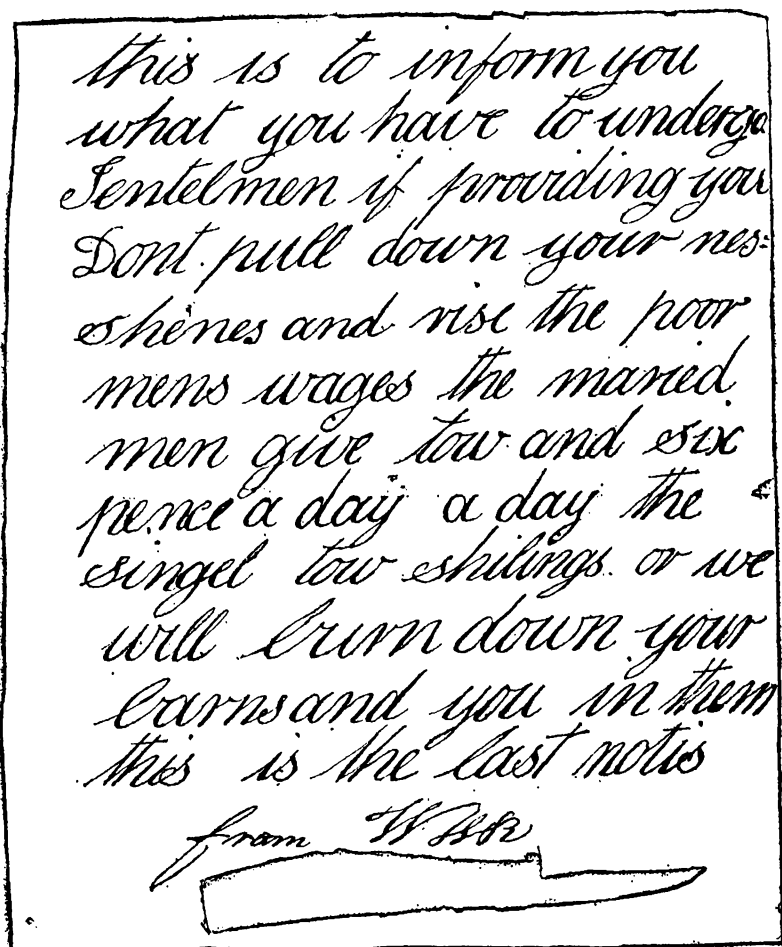 this is to inform you
what you have to undergo
Jentelmen if providing you
Dont pull down your nes=
shenes and rise the poor
mens wages the maried
men give tow and six
pence a day a day the
singel tow shilings or we
will burn down your
barns and you in them
this is the last notis
from